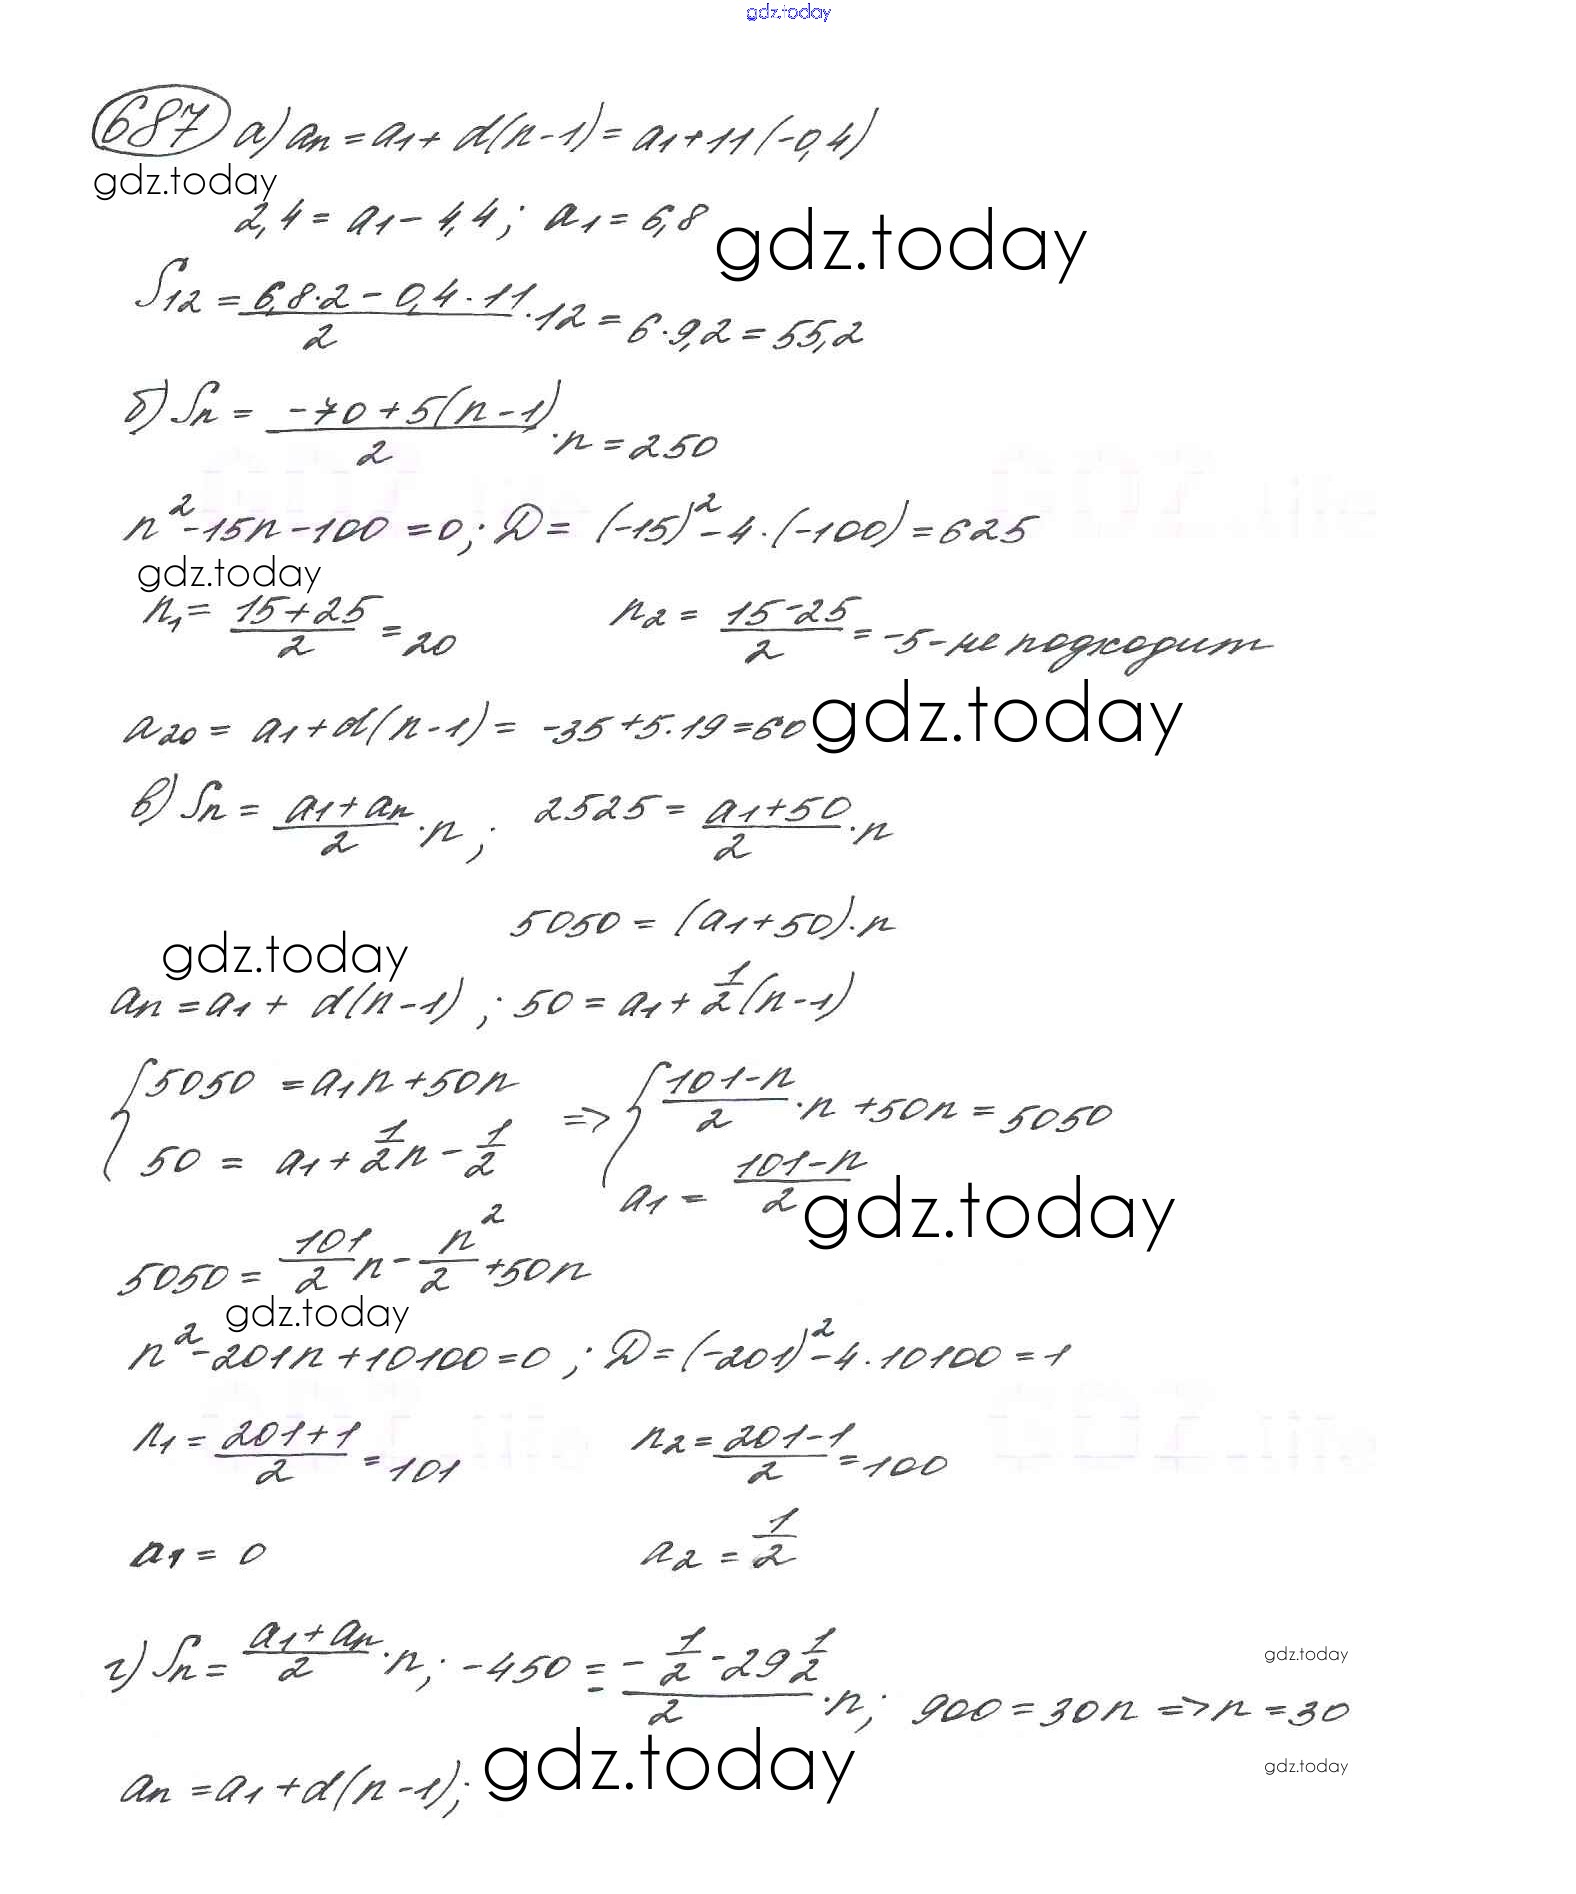 gdz.today
687 а) aₙ = a₁ + d(n-1) = a₁ + 11(-0,4)
gdz.today
2,4 = a₁ - 4,4; a₁ = 6,8
gdz.today
S₁₂ = (6,8·2 - 0,4·11)/2 · 12 = 6·9,2 = 55,2
б) Sₙ = (-70 + 5(n-1))/2 · n = 250
n² - 15n - 100 = 0; D = (-15)² - 4·(-100) = 625
gdz.today
n₁ = (15+25)/2 = 20 n₂ = (15-25)/2 = -5 - не подходит
a₂₀ = a₁ + d(n-1) = -35 + 5·19 = 60
gdz.today
в) Sₙ = (a₁+aₙ)/2 · n; 2525 = (a₁+50)/2 · n
5050 = (a₁+50)·n
gdz.today
aₙ = a₁ + d(n-1); 50 = a₁ + 1/2(n-1)
{ 5050 = a₁n + 50n => { (101-n)/2 · n + 50n = 5050
50 = a₁ + 1/2n - 1/2 a₁ = (101-n)/2
gdz.today
5050 = 101/2 n - n²/2 + 50n
gdz.today
n² - 201n + 10100 = 0; D = (-201)² - 4·10100 = 1
n₁ = (201+1)/2 = 101 n₂ = (201-1)/2 = 100
a₁ = 0 a₂ = 1/2
г) Sₙ = (a₁+aₙ)/2 · n; -450 = (-1/2 - 29 1/2)/2 · n; 900 = 30n => n = 30
gdz.today
aₙ = a₁ + d(n-1);
gdz.today
gdz.today